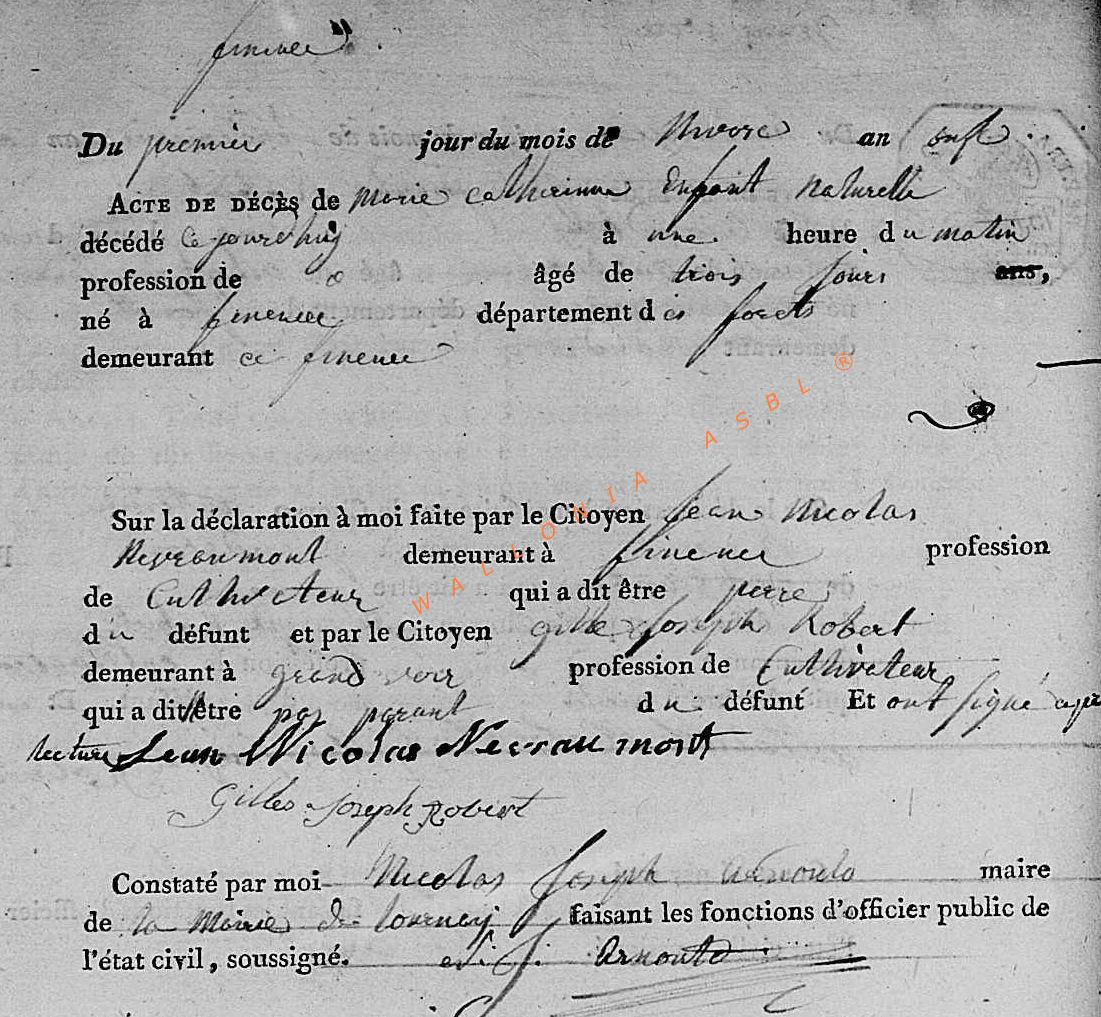 fineuce
Du premier jour du mois de Nivose an onse
ACTE DE DÉCÈS de Marie Catherinne Enfant Naturelle
décédé Ce jourd'huy à une heure du matin
profession de o âgé de trois jours ans,
né à fineuce département des forets
demeurant ce fineuce
WALLONIA ASBL ®
Sur la déclaration à moi faite par le Citoyen Jean Nicolas
Nevraumont demeurant à fineuce profession
de Cultivateur qui a dit être perre
du défunt et par le Citoyen gille Joseph Robert
demeurant à grand voir profession de Cultivateur
qui a dit être pas parant du défunt Et ont signé
lecture Jean Nicolas Nevraumont
Gilles Joseph Robert
Constaté par moi Nicolas Joseph Arnould maire
de la Mairie de tournay faisant les fonctions d'officier public de
l'état civil, soussigné. Arnould